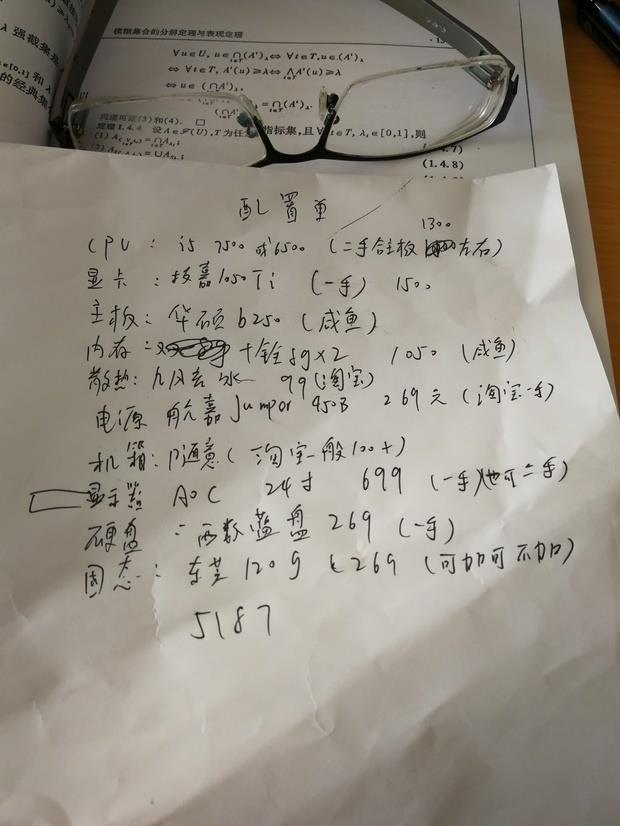 模糊集合的分解定理与表现定理
强截集
∀u∈U, u∈⋂(A')λ ⇔ ∀t∈T, u∈(A')λ
⇔ ∀t∈T, A'(u)≥λ ⇔ ⋀A'(u)≥λ
⇔ u∈
同理可证(3)和(4). □
定理1.4.4 设A∈ℱ(U), T为任 指标集, 且∀t∈T, λt∈[0,1], 则
的经典集
(1.4.7)
(1.4.8)
配置单
1300
CPU: i5 7500 或6500 (二手含主板 左右)
显卡: 技嘉1050Ti (一手) 1500
主板: 华硕b250 (咸鱼)
内存: 十铨8g×2 1050 (咸鱼)
散热: 九州玄冰 99 (淘宝)
电源 航嘉Jumper 450B 269元 (淘宝一手)
机箱: 随意 (淘宝一般100+)
显示器 AOC 24寸 699 (一手)也可二手
硬盘: 西数蓝盘 269 (一手)
固态: 东芝120g 269 (可加可不加)
5187